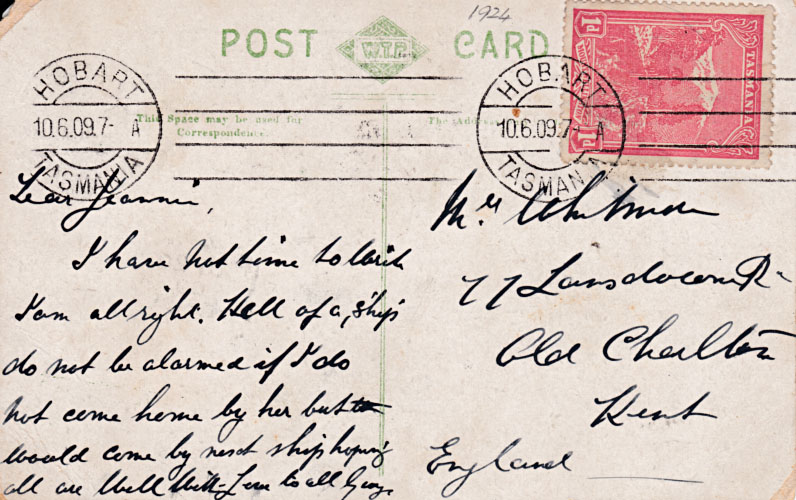 1924
POST W.T.P. CARD
1d TASMANIA 1d
HOBART
10.6.09.7- A
TASMANIA
HOBART
10.6.09.7- A
TASMANIA
This Space may be used for
Correspondence.
The Address
Dear Jeannie,
I have not time to write
I am allright. Hell of a ship
do not be alarmed if I do
not come home by her but
would come by next ship hoping
all are well with Love to all
Mrs Whitman
77 Lansdowne Rd
Old Charlton
Kent
England